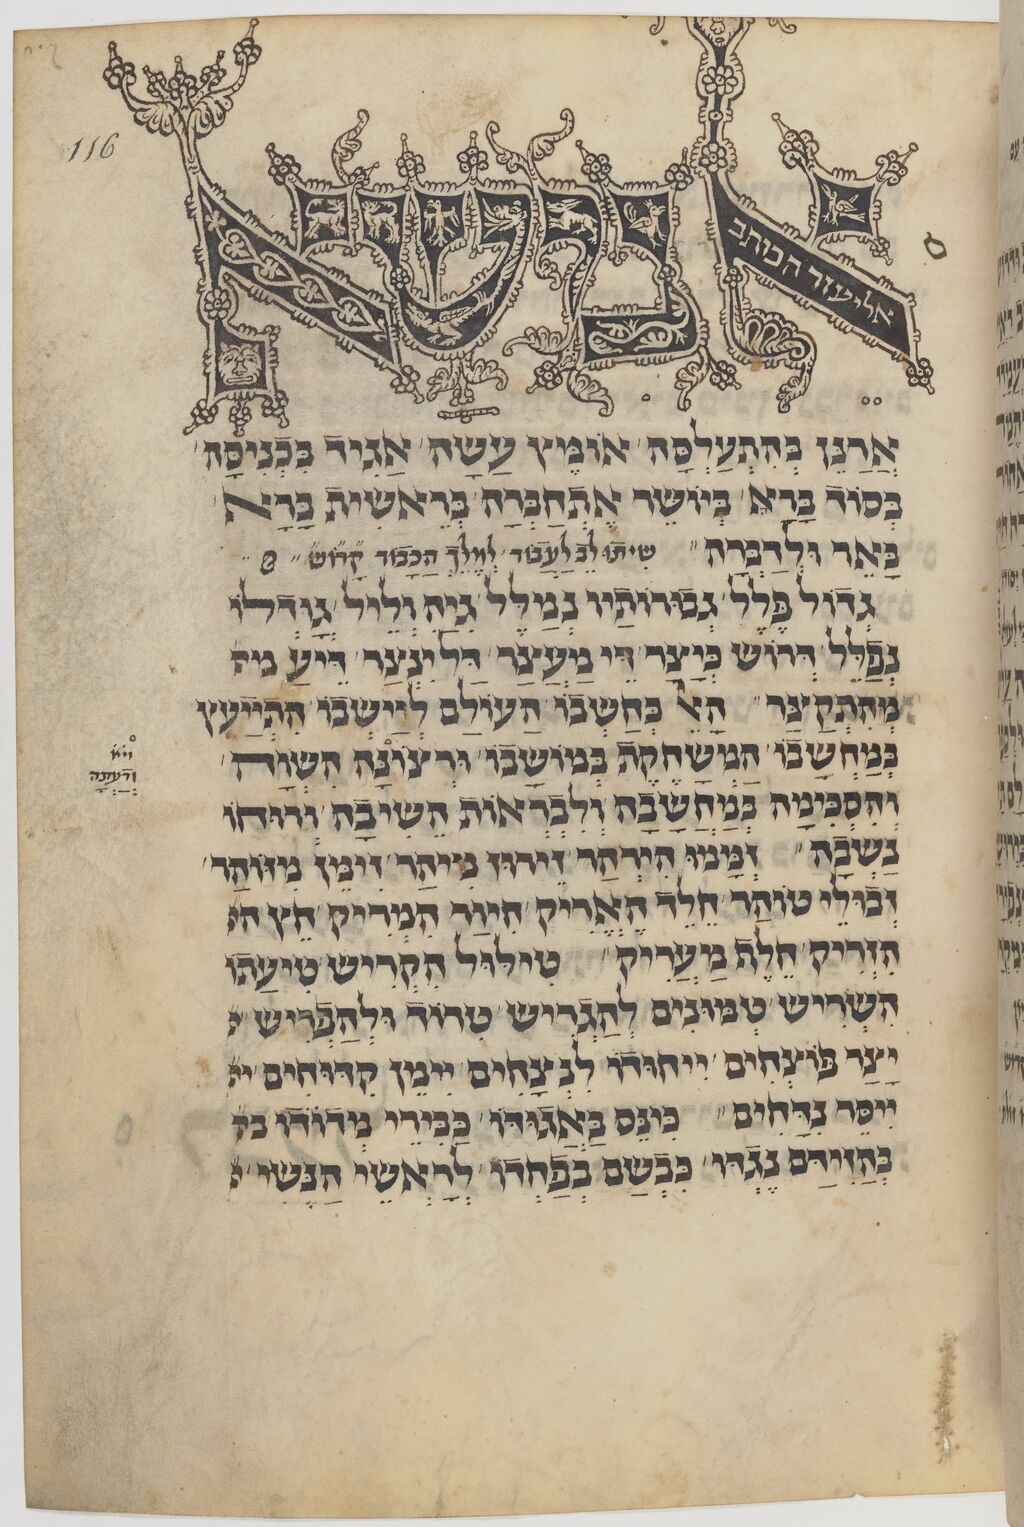 116
אבטא
אליעזר המותב
אֲרַנֵּן בְּהִתְעַלְסָה׳ אוֹמֶץ עָשָׂה׳ אַגִּיד בִּכְנִיסָה׳
בְּסוֹד בָּרָא׳ בְּיוֹשֶׁר אֶתְחַבְּרָה׳ בְּרֵאשִׁית בָּרָא
בָּאֵר וּלְדַבְּרָה״ שִׁיתוּ לֵב לַעֲבוֹד׳ לְמֶלֶךְ הַכָּבוֹד קָדוֹשׁ״
גְּדוֹל פֶּלֶל׳ גְּבוּרוֹתָיו נְמַלֵּל׳ גִּיהַּ וְלֵיל׳ גּוֹדְלוֹ
נְפַלֵּל׳ דְּרוֹשׁ כְּיֵצֶר׳ דֵּי מַעֲצַר׳ דַּלִינְצַר׳ דֵּיעַ מִ
מֵהִתְקַצַּר״ הָאֵל׳ בְּחַשְׁבוֹ׳ הָעוֹלָם לְיַישְׁבוֹ׳ הִתְיַיעֵץ
בְּמַחְשָׁבוֹ׳ הַמְשַׂחֶקֶת בְּמוֹשָׁבוֹ׳ וּרְצוֹנָהּ הִשְׁוָה׳
וְהִסְכִּימָה בְּמַחֲשָׁבָה׳ וְלִבְרְאוֹת הֵשִׁיבָה׳ וְרוּחוֹ
נָשְׁבָה״ זְמָמוֹ הִזְהַר׳ זֵירוּז מִיהַר׳ זִימֵּן מִזּוֹהַר׳
זְבוּלֵי טוֹהַר׳ חֶלֶד הֶאֱרִיק׳ חִיוֵּר הִמְרִיק׳ חֵץ ה
הִזְרִיק׳ חֵלֶת מַעֲרִיק״ טִילּוּל הִקְרִישׁ׳ טִיעָתוֹ
הִשְׁרִישׁ׳ טְמוּנִים לְהַגְרִישׁ׳ טְרוֹד וּלְהַפְרִישׁ׳
יָצַר פּוֹצְחִים׳ יִיחוּדוֹ לִנְצָחִים׳ יִימֵּן קִדּוּחִים׳
יִיסֵּר נִדָּחִים״ כִּינֵּס בַּאֲגוּדּוֹ׳ כַּבִּירֵי מְדוֹדוֹ
בְּהַזִּידָם נֶגְדּוֹ׳ כִּבְשָׁם בְּפַחְדּוֹ׳ לְרָאשֵׁי הַנְּשִׁי׳